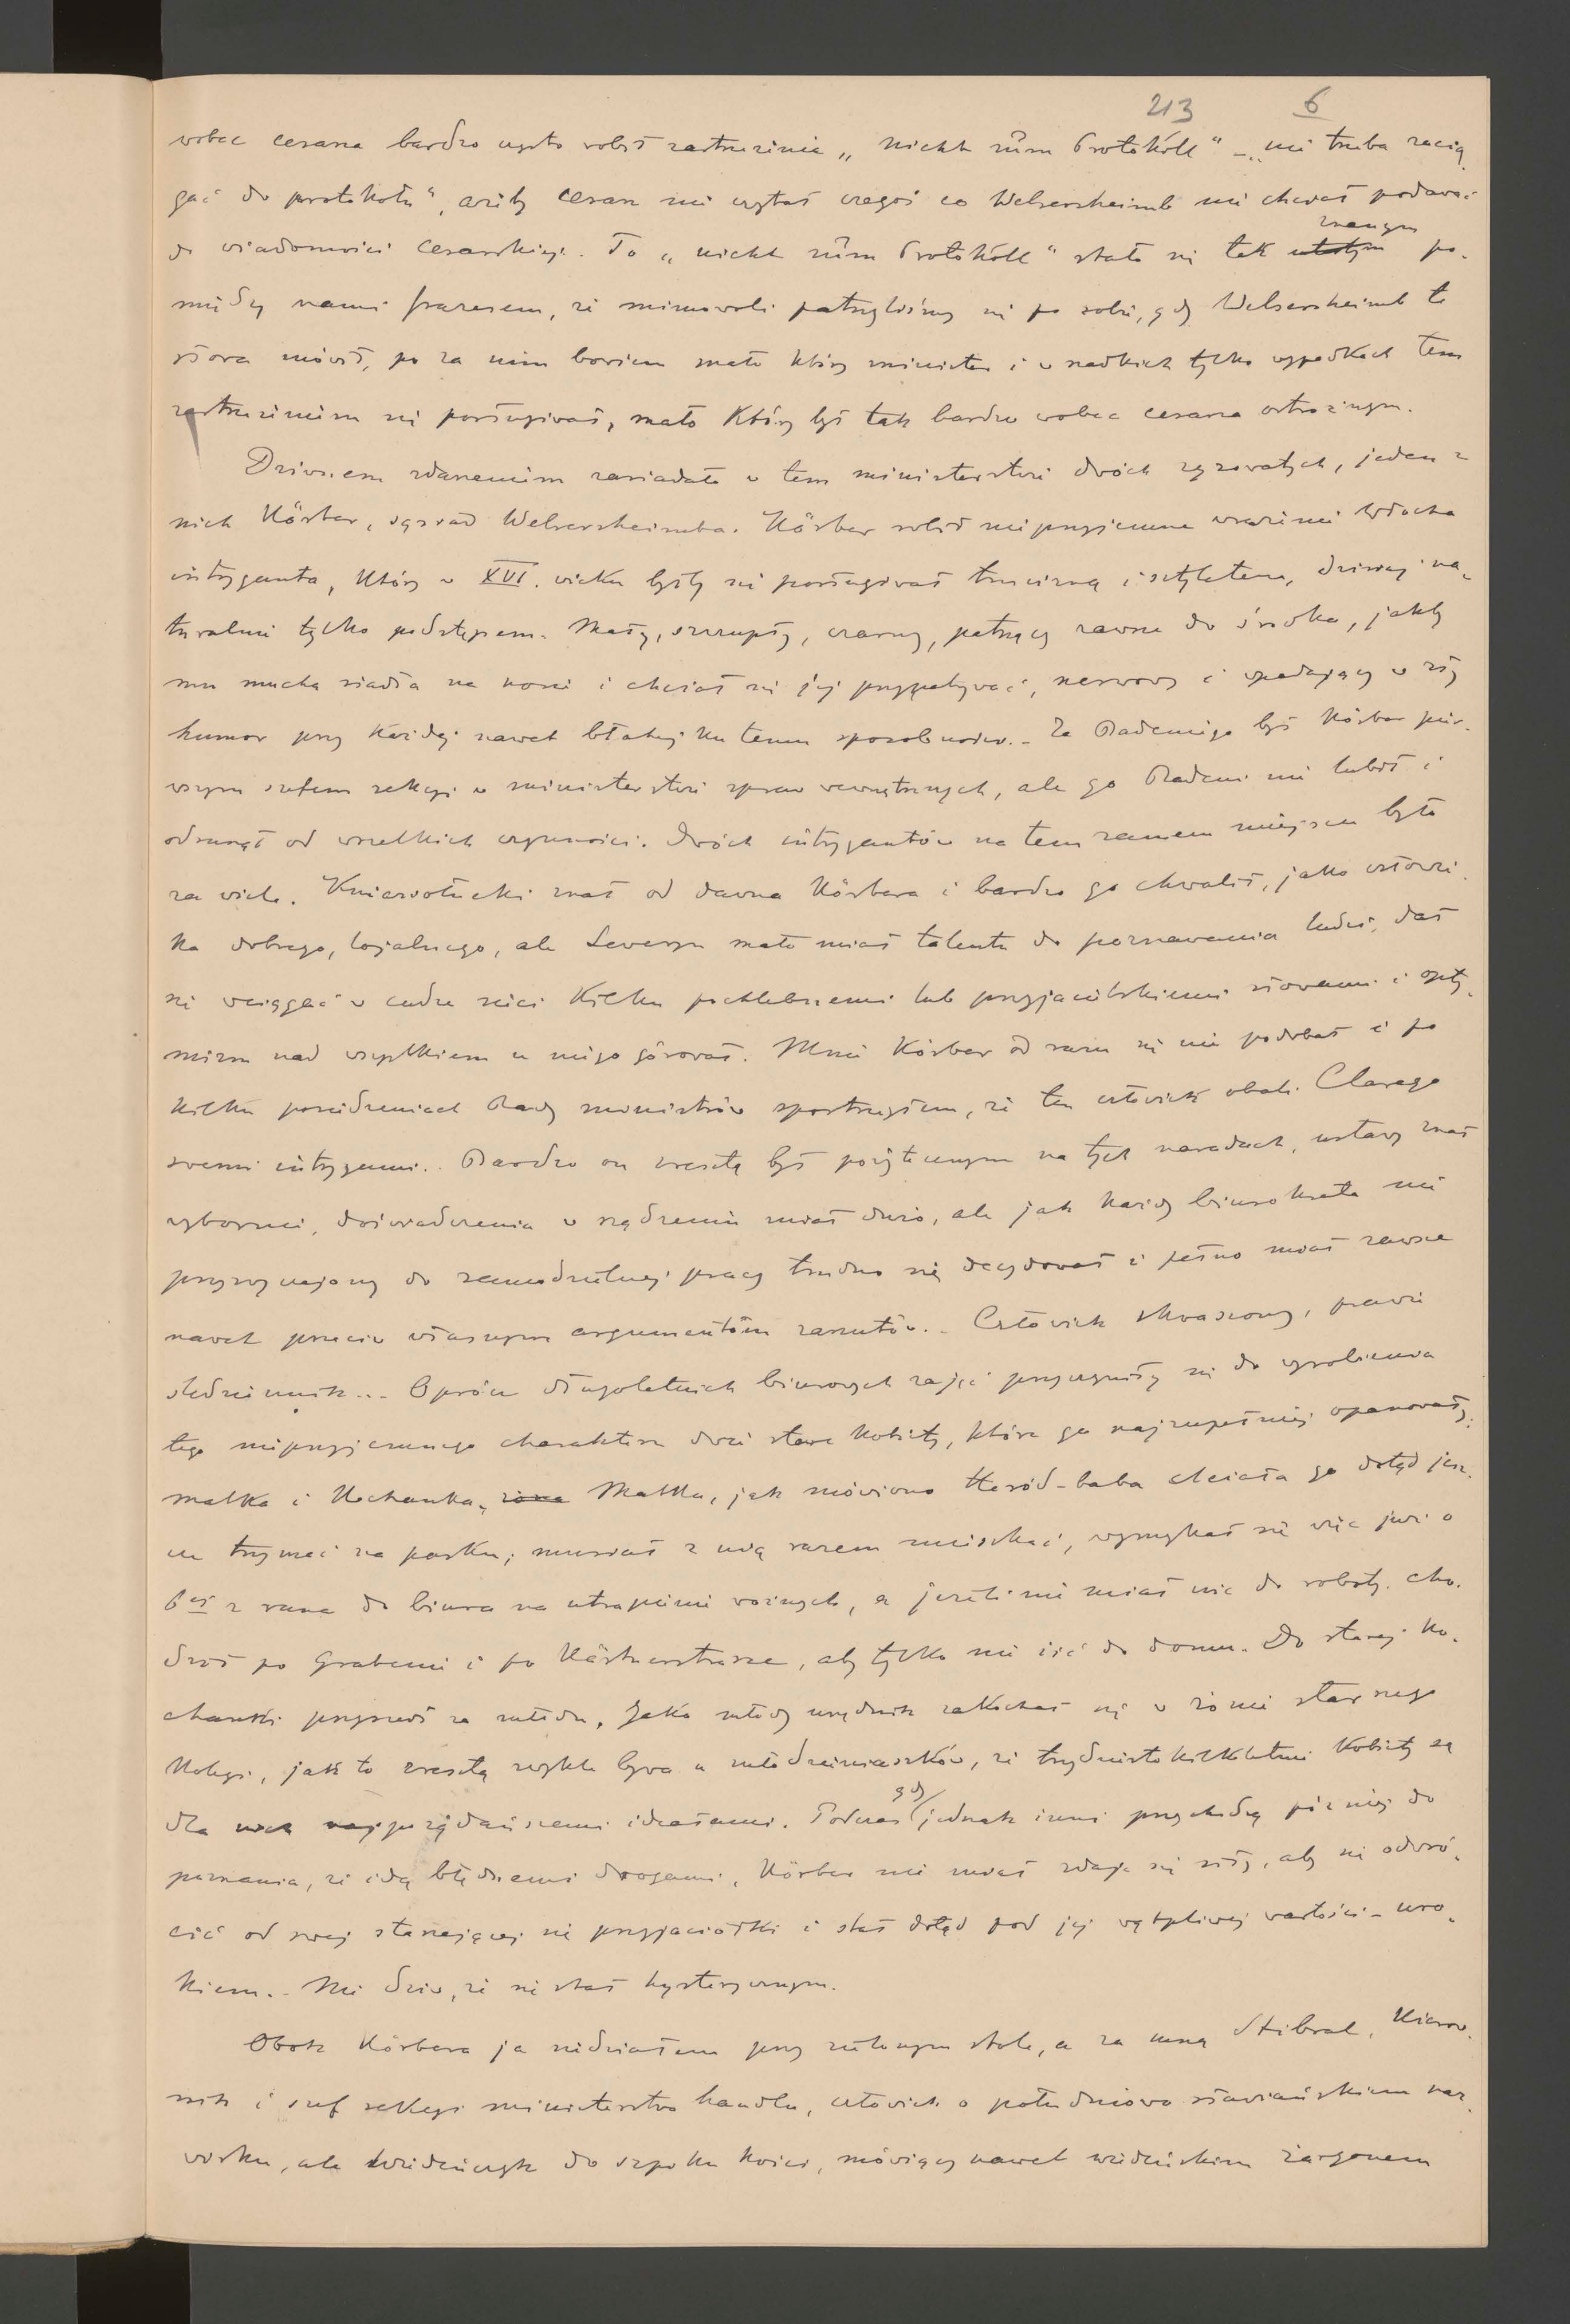 213 6
wobec cesarza bardzo często robił zastrzeżenie „nicht zům Protokóll" – „nie trzeba zacią-
gać do protokołu", ażeby cesarz nie czytał czegoś co Welsersheimb nie chciał podawać
do wiadomości cesarskiej. To „nicht zům Protokóll" stało się tak utartym znanym po-
między nami frazesem, że mimowoli patrzyliśmy się po sobie, gdy Welsersheimb te
słowa mówił, po za nim bowiem mało który minister i w rzadkich tylko wypadkach tem
zastrzeżeniem się posługiwał, mało który był tak bardzo wobec cesarza ostrożnym.
Dziwnem zdarzeniem zasiadało w tem ministerstwie dwóch zyzowatych, jeden z
nich Körber, sąsiad Welsersheimba. Körber robił nieprzyjemne wrażenie Włocha
intryganta, który w XVI. wieku byłby się posługiwał trucizną i sztyletem, dzisiaj na-
turalnie tylko podstępem. Mały, szczupły, czarny, patrzący zawsze do środka, jakby
mu mucha siadła na nosie i chciał się jej przypatrywać, nerwowy i wpadający w zły
humor przy każdej nawet błahej ku temu sposobności. – Za Badeniego był Körber pier-
wszym szefem sekcyi w ministerstwie spraw wewnętrznych, ale go Badeni nie lubił i
odsunął od wszelkich czynności. Dwóch intrygantów na tem samem miejscu było
za wiele. Kniaziołucki znał od dawna Körbera i bardzo go chwalił, jako człowie-
ka dobrego, lojalnego, ale Seweryn mało miał talentu do poznawania ludzi, dał
się wciągać w cudze sieci kilku pochlebnemi lub przyjacielskiemi słowami i opty-
mizm nad wszystkiem u niego górował. Mnie Körber od razu się nie podobał i po
kilku posiedzeniach Rady ministrów spostrzegłem, że ten człowiek obali Clarego
swemi intrygami. Bardzo on zresztą był pożytecznym na tych naradach, ustawy znał
wybornie, doświadczenia w rządzeniu miał dużo, ale jak każdy biurokrata nie
przyzwyczajony do samodzielnej pracy trudno się decydował i pełno miał zawsze
nawet przeciw własnym argumentóm zarzutów. – Człowiek skwaszony, prawie
śledziennik... Oprócz długoletnich biurowych zajęć przyczyniły się do wyrobienia
tego nieprzyjemnego charakteru dwie stare kobiety, które go najzupełniej opanowały:
matka i kochanka, żona Matka, jak mówiono Heród-baba chciała go dotąd jesz-
cze trzymać na pasku; musiał z nią razem mieszkać, wymykał się więc już o
6ej z rana do biura na utrapienie woźnych, a jeżeli nie miał nic do roboty cho-
dził po Grabenie i po Kärtnerstrasse, aby tylko nie iść do domu. Do starej ko-
chanki przyszedł za młodu. Jako młody urzędnik zakochał się w żonie starszego
kolegi, jak to zresztą zwykle bywa u młodzieniaszków, że trzydziestokilkoletnie kobiety są
dla nich najpożądańszemi ideałami. Podczas gdy jednak inni przychodzą później do
poznania, że idą błędnemi drogami, Körber nie miał zdaje się siły, aby się odwró-
cić od swej starzejącej się przyjaciółki i stał dotąd pod jej wątpliwej wartości – uro-
kiem. – Nie dziw, że się stał hysterycznym.
Obok Körbera ja siedziałem przy zielonym stole, a za mną Stibral, kierow-
nik i szef sekcyi ministerstwa handlu, człowiek o południowo słowiańskiem naz-
wisku, ale wiedeńczyk do szpiku kości, mówiący nawet wiedeńskim żargonem